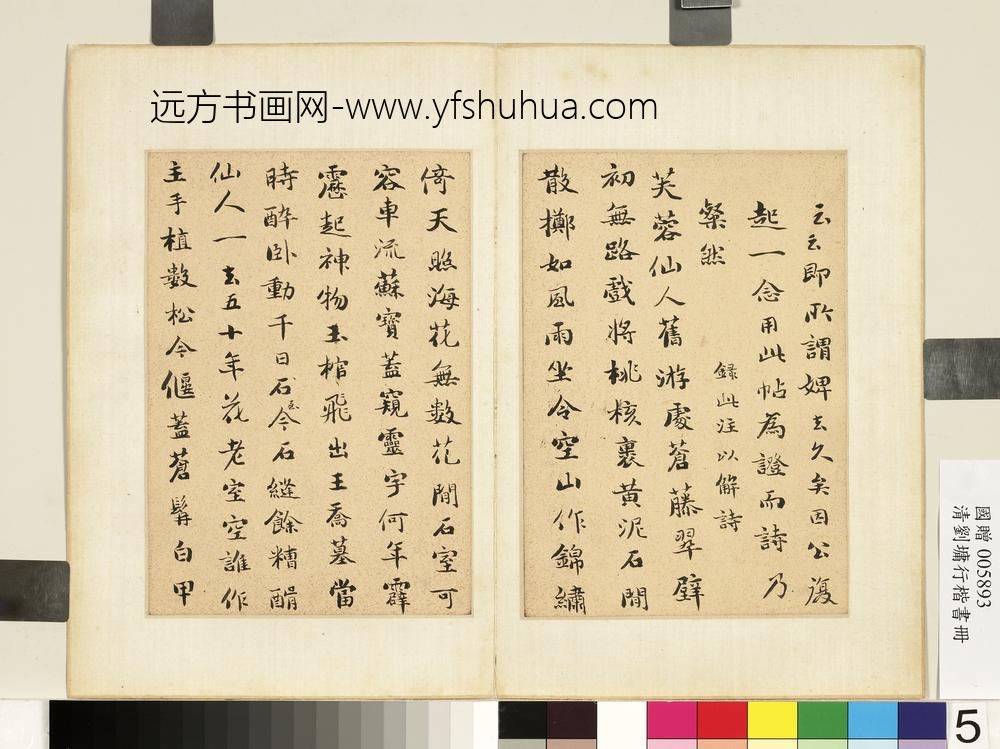 远方书画网-www.yfshuhua.com
云云即所謂婢去久矣因公復
起一念用此帖為證而詩乃
粲然
錄此注以解詩
芙蓉仙人舊游處蒼藤翠壁
初無路戲將桃核裹黃泥石間
散擲如風雨坐令空山作錦繡
倚天照海花無數花間石室可
容車流蘇寶蓋窺靈宇何年霹
靂起神物玉棺飛出王喬墓當
時醉臥動千日至今石縫餘糟醑
仙人一去五十年花老室空誰作
主手植數松今偃蓋蒼髯白甲
國贈 005893
清劉墉行楷書冊
5